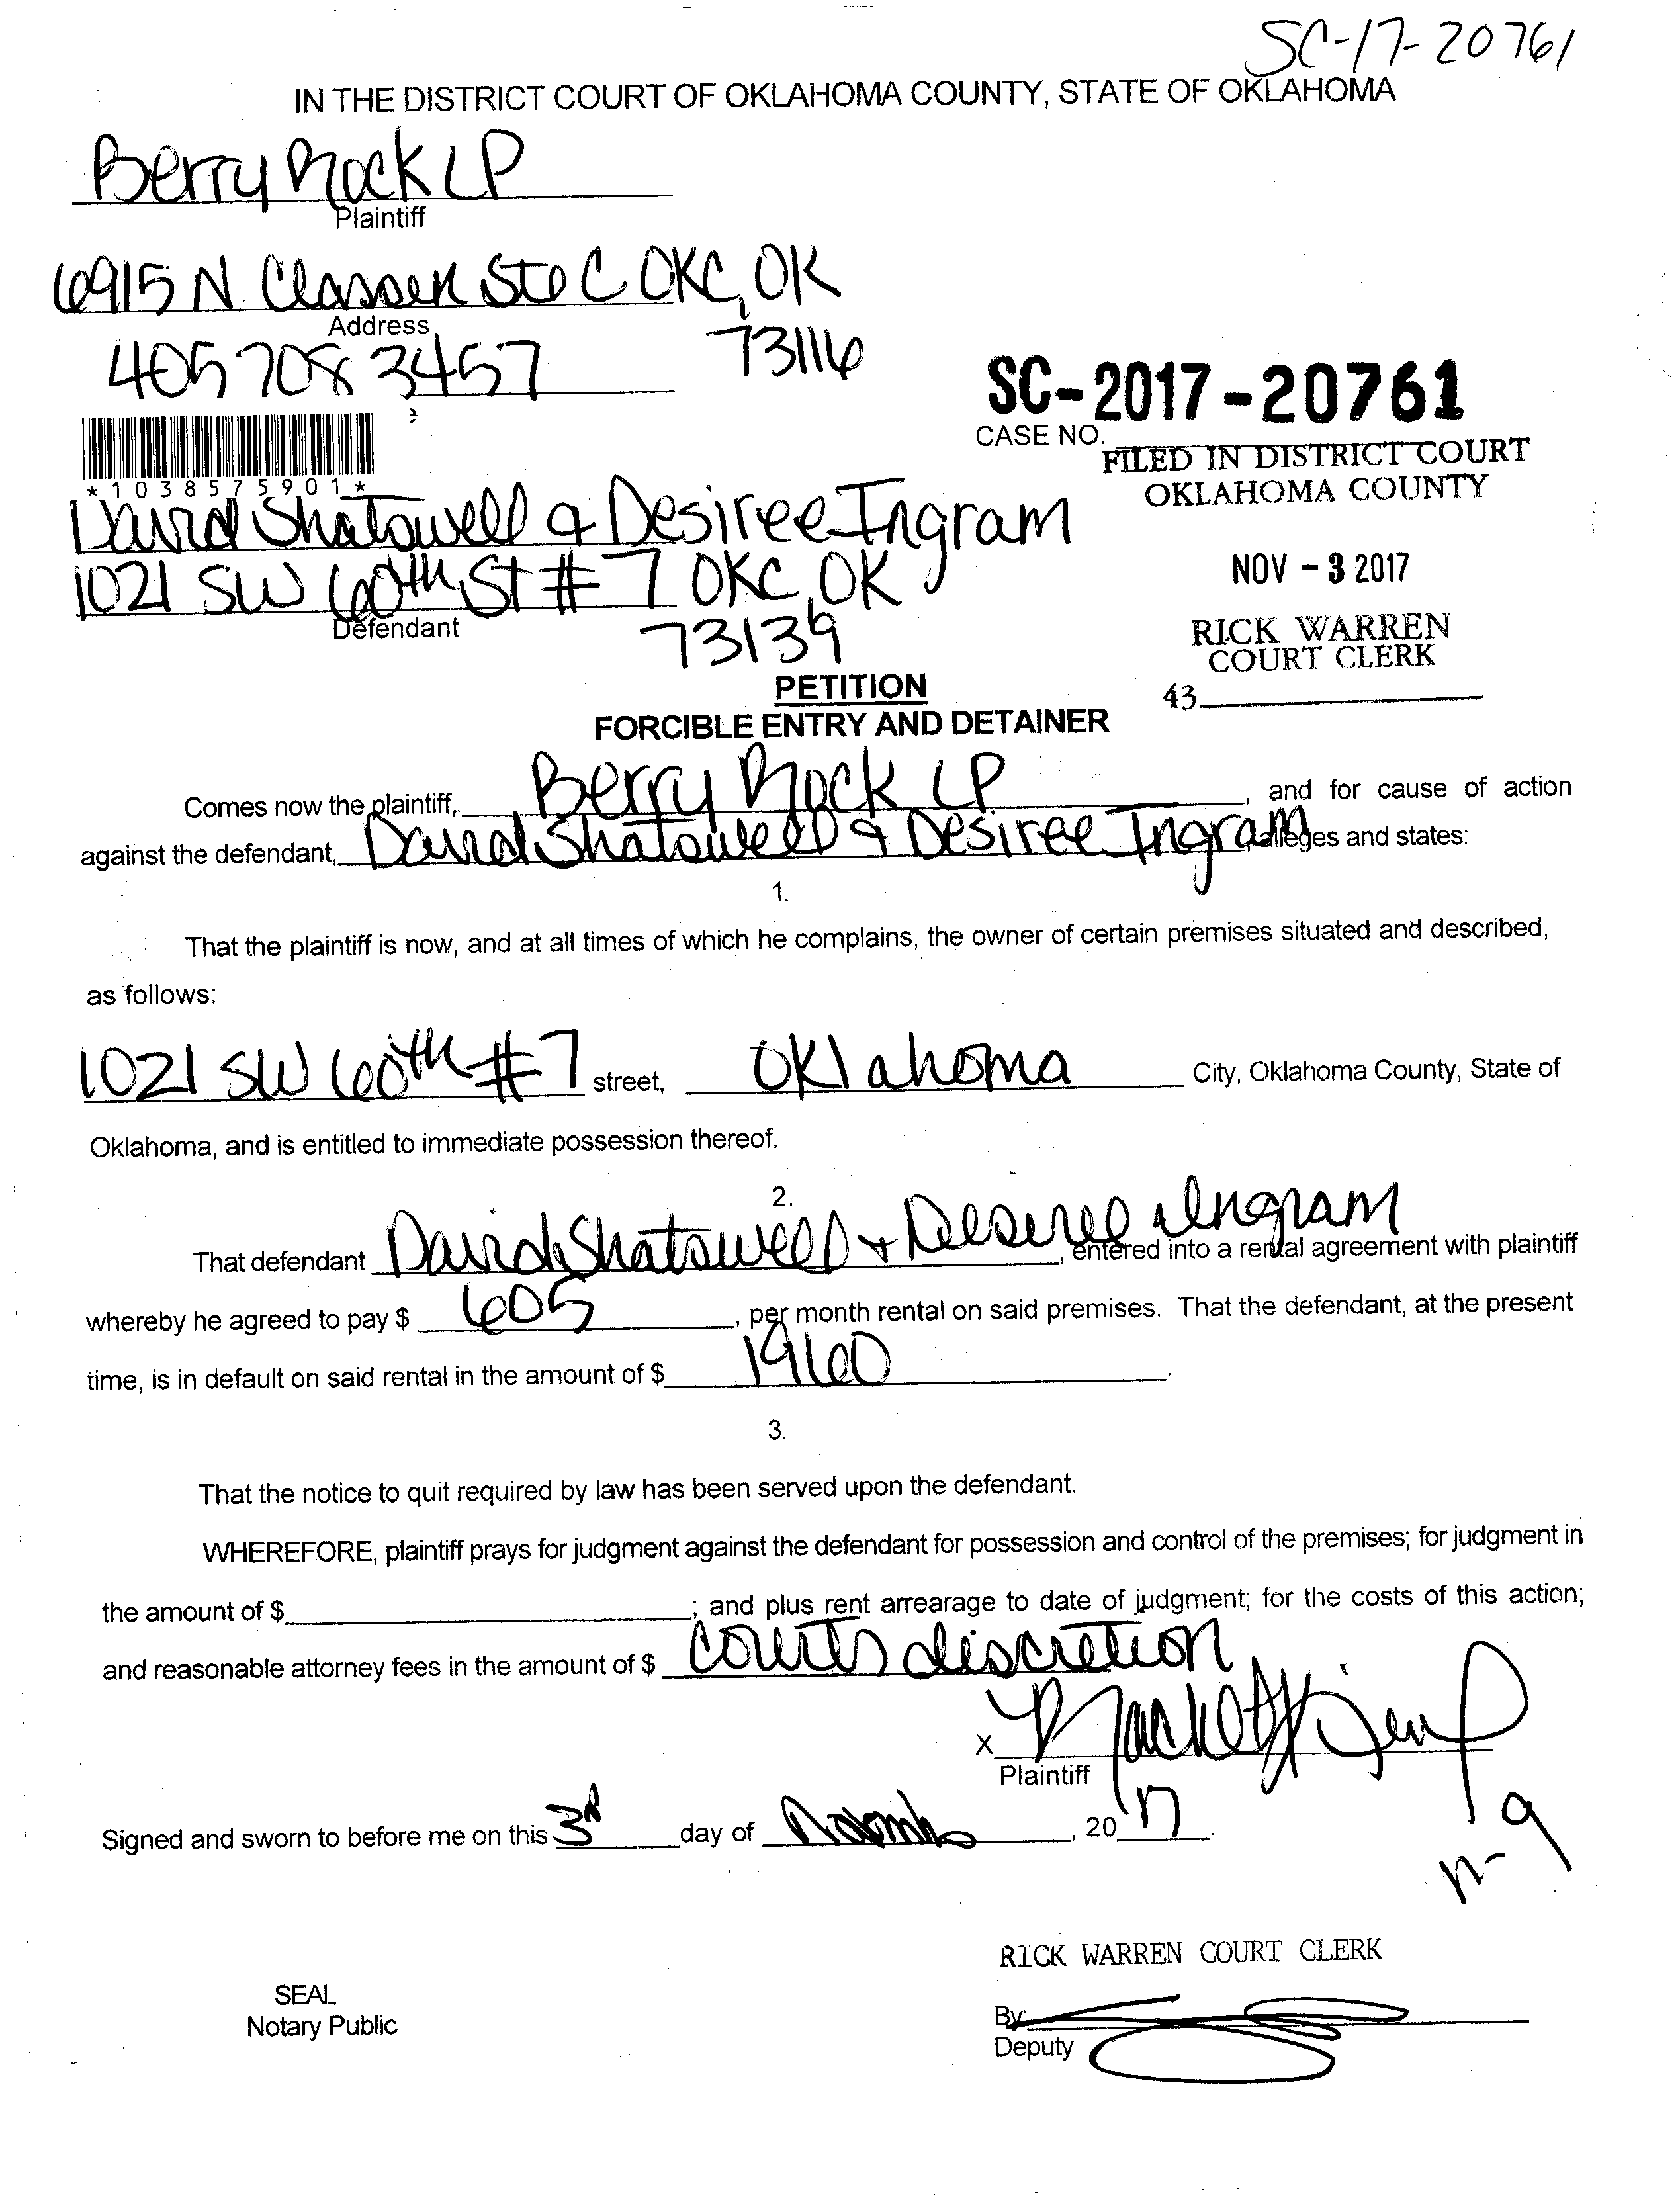 SC-17-20761
IN THE DISTRICT COURT OF OKLAHOMA COUNTY, STATE OF OKLAHOMA
Berry Rock LP
Plaintiff
6915 N. Classen Ste C OKC, OK
Address
73116
405 708 3457
SC-2017-20761
CASE NO.
FILED IN DISTRICT COURT
OKLAHOMA COUNTY
*1038575901*
David Shatswell & Desiree Ingram
1021 SW 60th St # 7 OKC, OK
Defendant
73139
NOV - 3 2017
RICK WARREN
COURT CLERK
43
PETITION
FORCIBLE ENTRY AND DETAINER
Comes now the plaintiff, Berry Rock LP, and for cause of action
against the defendant, David Shatswell & Desiree Ingram, alleges and states:
1.
That the plaintiff is now, and at all times of which he complains, the owner of certain premises situated and described,
as follows:
1021 SW 60th #7 street, Oklahoma City, Oklahoma County, State of
Oklahoma, and is entitled to immediate possession thereof.
2.
That defendant David Shatswell & Desiree Ingram, entered into a rental agreement with plaintiff
whereby he agreed to pay $ 605, per month rental on said premises. That the defendant, at the present
time, is in default on said rental in the amount of $ 1960.
3.
That the notice to quit required by law has been served upon the defendant.
WHEREFORE, plaintiff prays for judgment against the defendant for possession and control of the premises; for judgment in
the amount of $ ; and plus rent arrearage to date of judgment; for the costs of this action;
and reasonable attorney fees in the amount of $ courts discretion
x
Plaintiff
Signed and sworn to before me on this 3rd day of November, 2017.
n-9
RICK WARREN COURT CLERK
SEAL
Notary Public
By:
Deputy